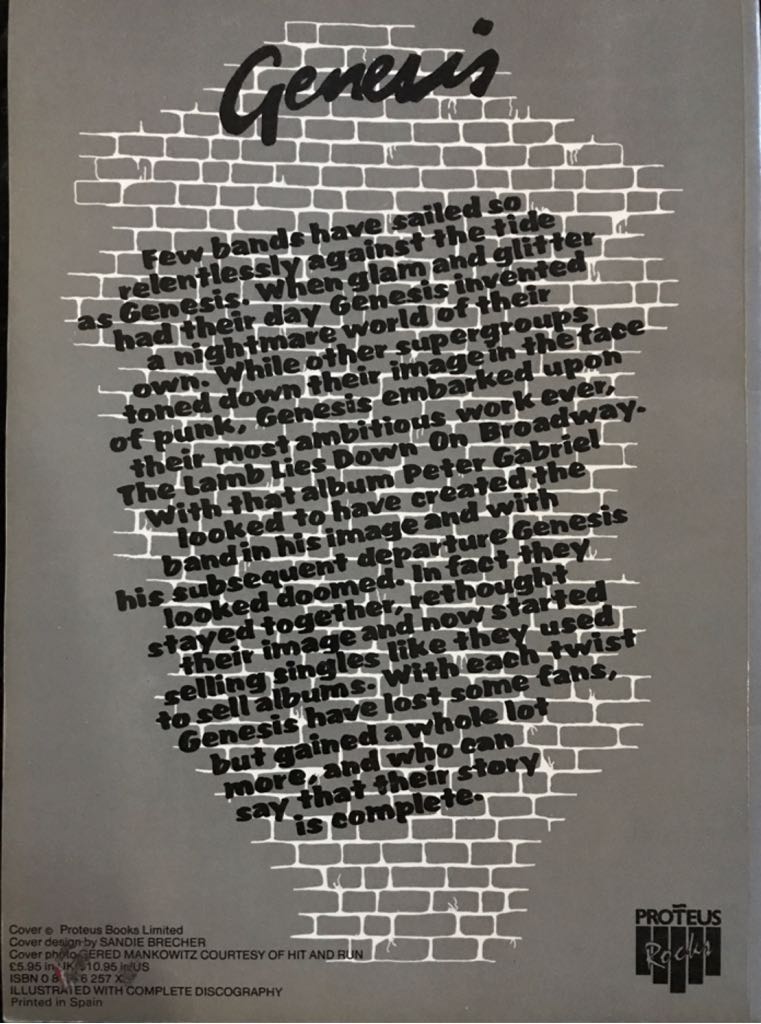 Genesis
Few bands have sailed so
relentlessly against the tide
as Genesis. When glam and glitter
had their day Genesis invented
a nightmare world of their
own. While other supergroups
toned down their image in the face
of punk, Genesis embarked upon
their most ambitious work ever,
The Lamb Lies Down On Broadway.
With that album Peter Gabriel
looked to have created the
band in his image and with
his subsequent departure Genesis
looked doomed. In fact they
stayed together, rethought
their image and now started
selling singles like they used
to sell albums. With each twist
Genesis have lost some fans,
but gained a whole lot
more, and who can
say that their story
is complete.
Cover © Proteus Books Limited
Cover design by SANDIE BRECHER
Cover photo GERED MANKOWITZ COURTESY OF HIT AND RUN
£5.95 in UK $10.95 in US
ISBN 0 6 257 X
ILLUSTRATED WITH COMPLETE DISCOGRAPHY
Printed in Spain
PROTEUS
Rocks